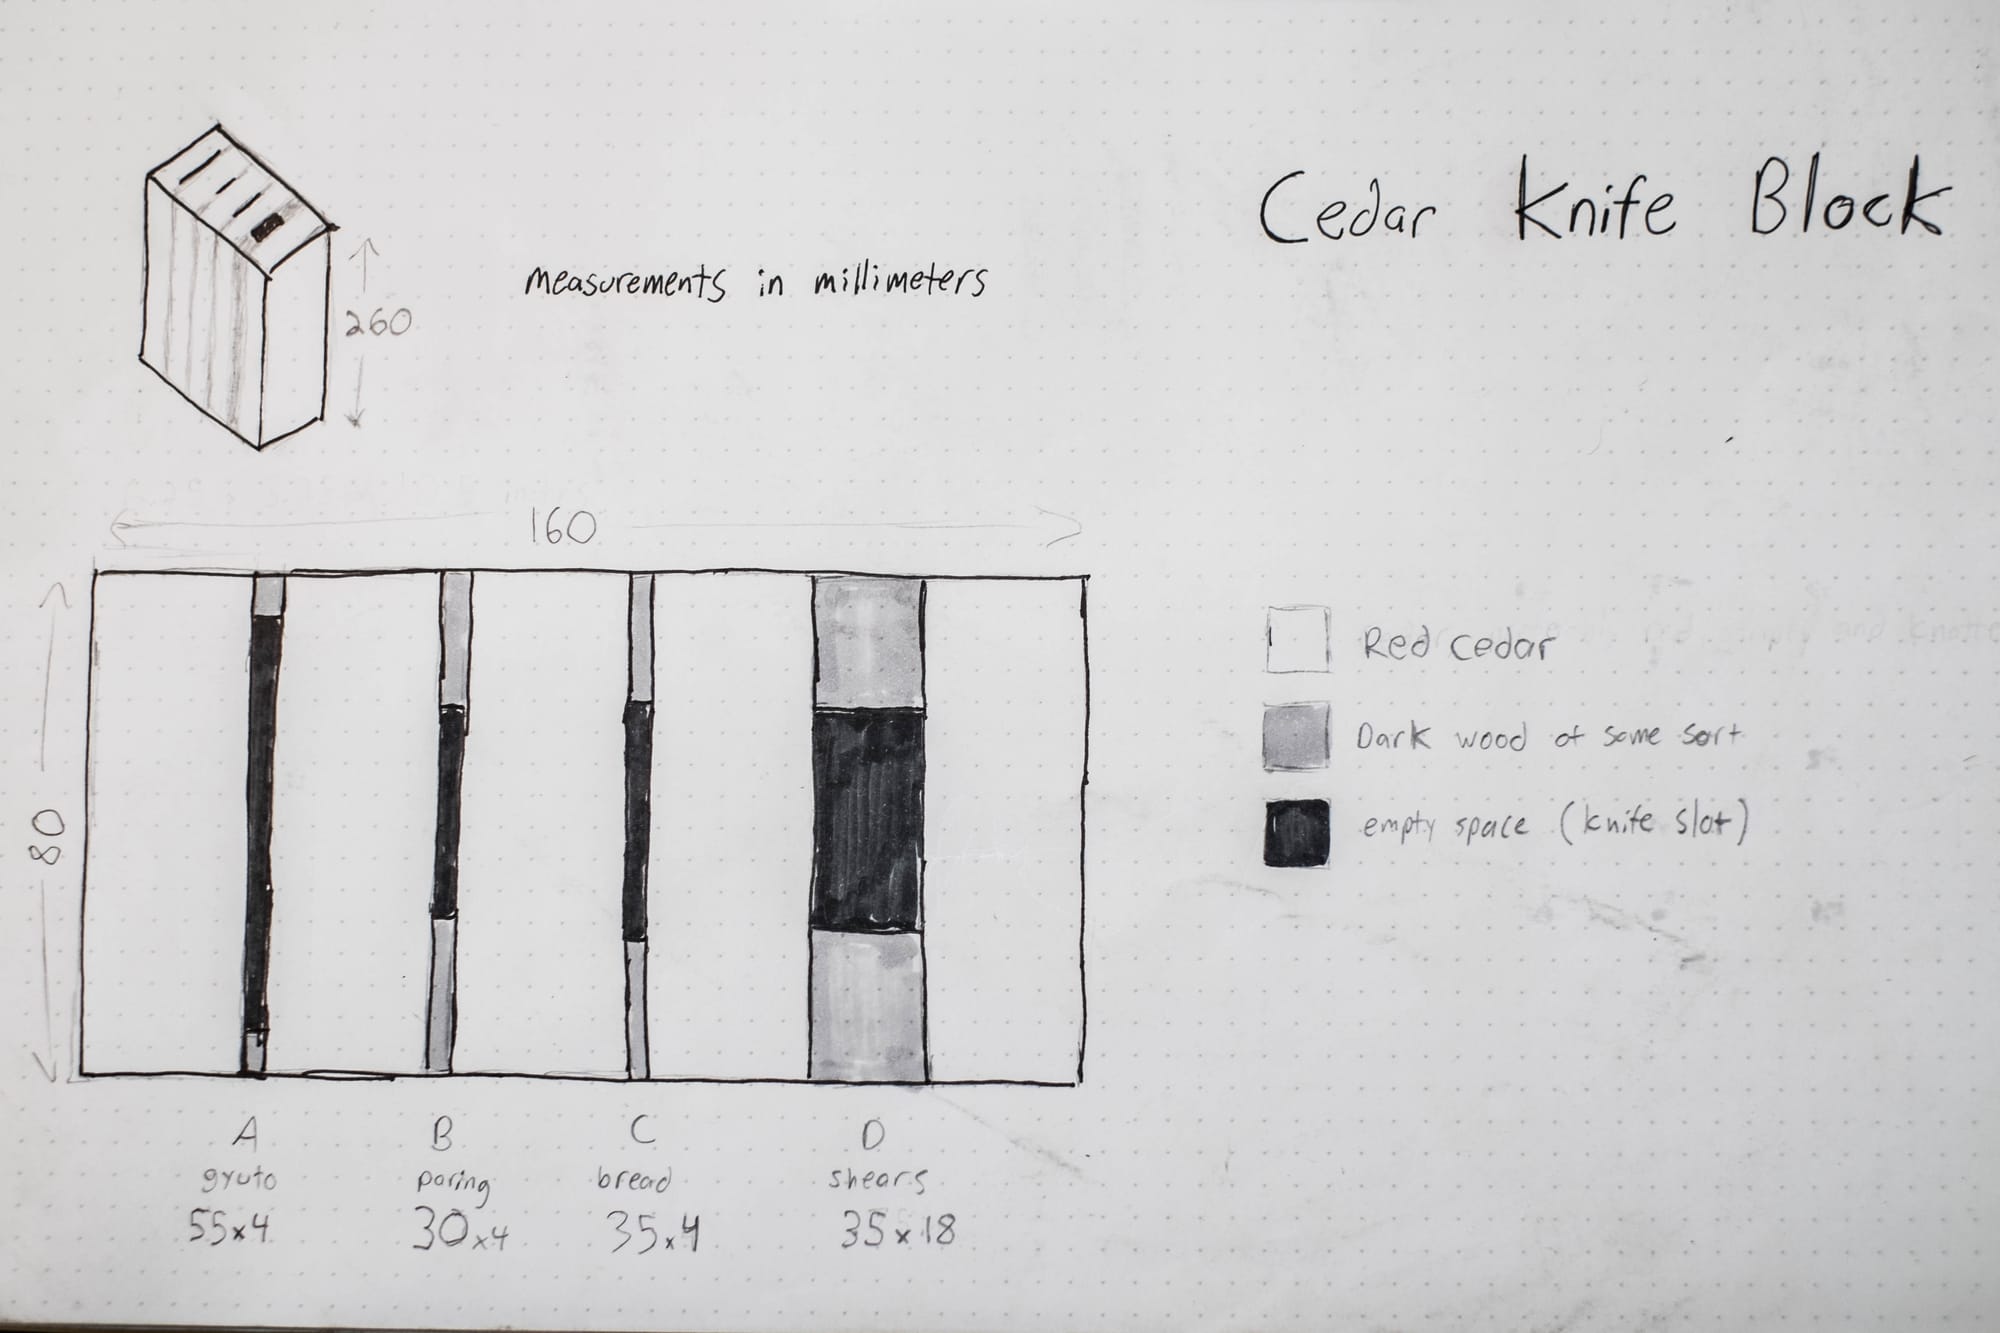 Cedar Knife Block
measurements in millimeters
260
160
80
Red cedar
Dark wood of some sort
empty space (knife slot)
A B C D
gyuto paring bread shears
55x4 30x4 35x4 35x18